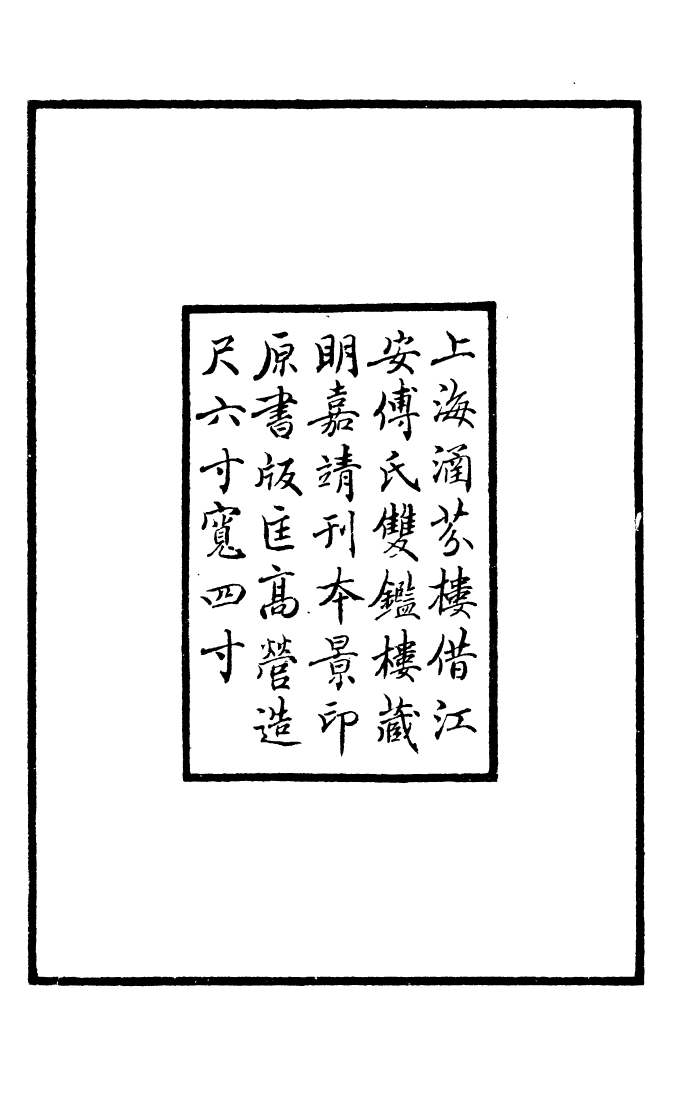 上海涵芬樓借江
安傅氏雙鑑樓藏
明嘉靖刊本景印
原書版匡高營造
尺六寸寬四寸